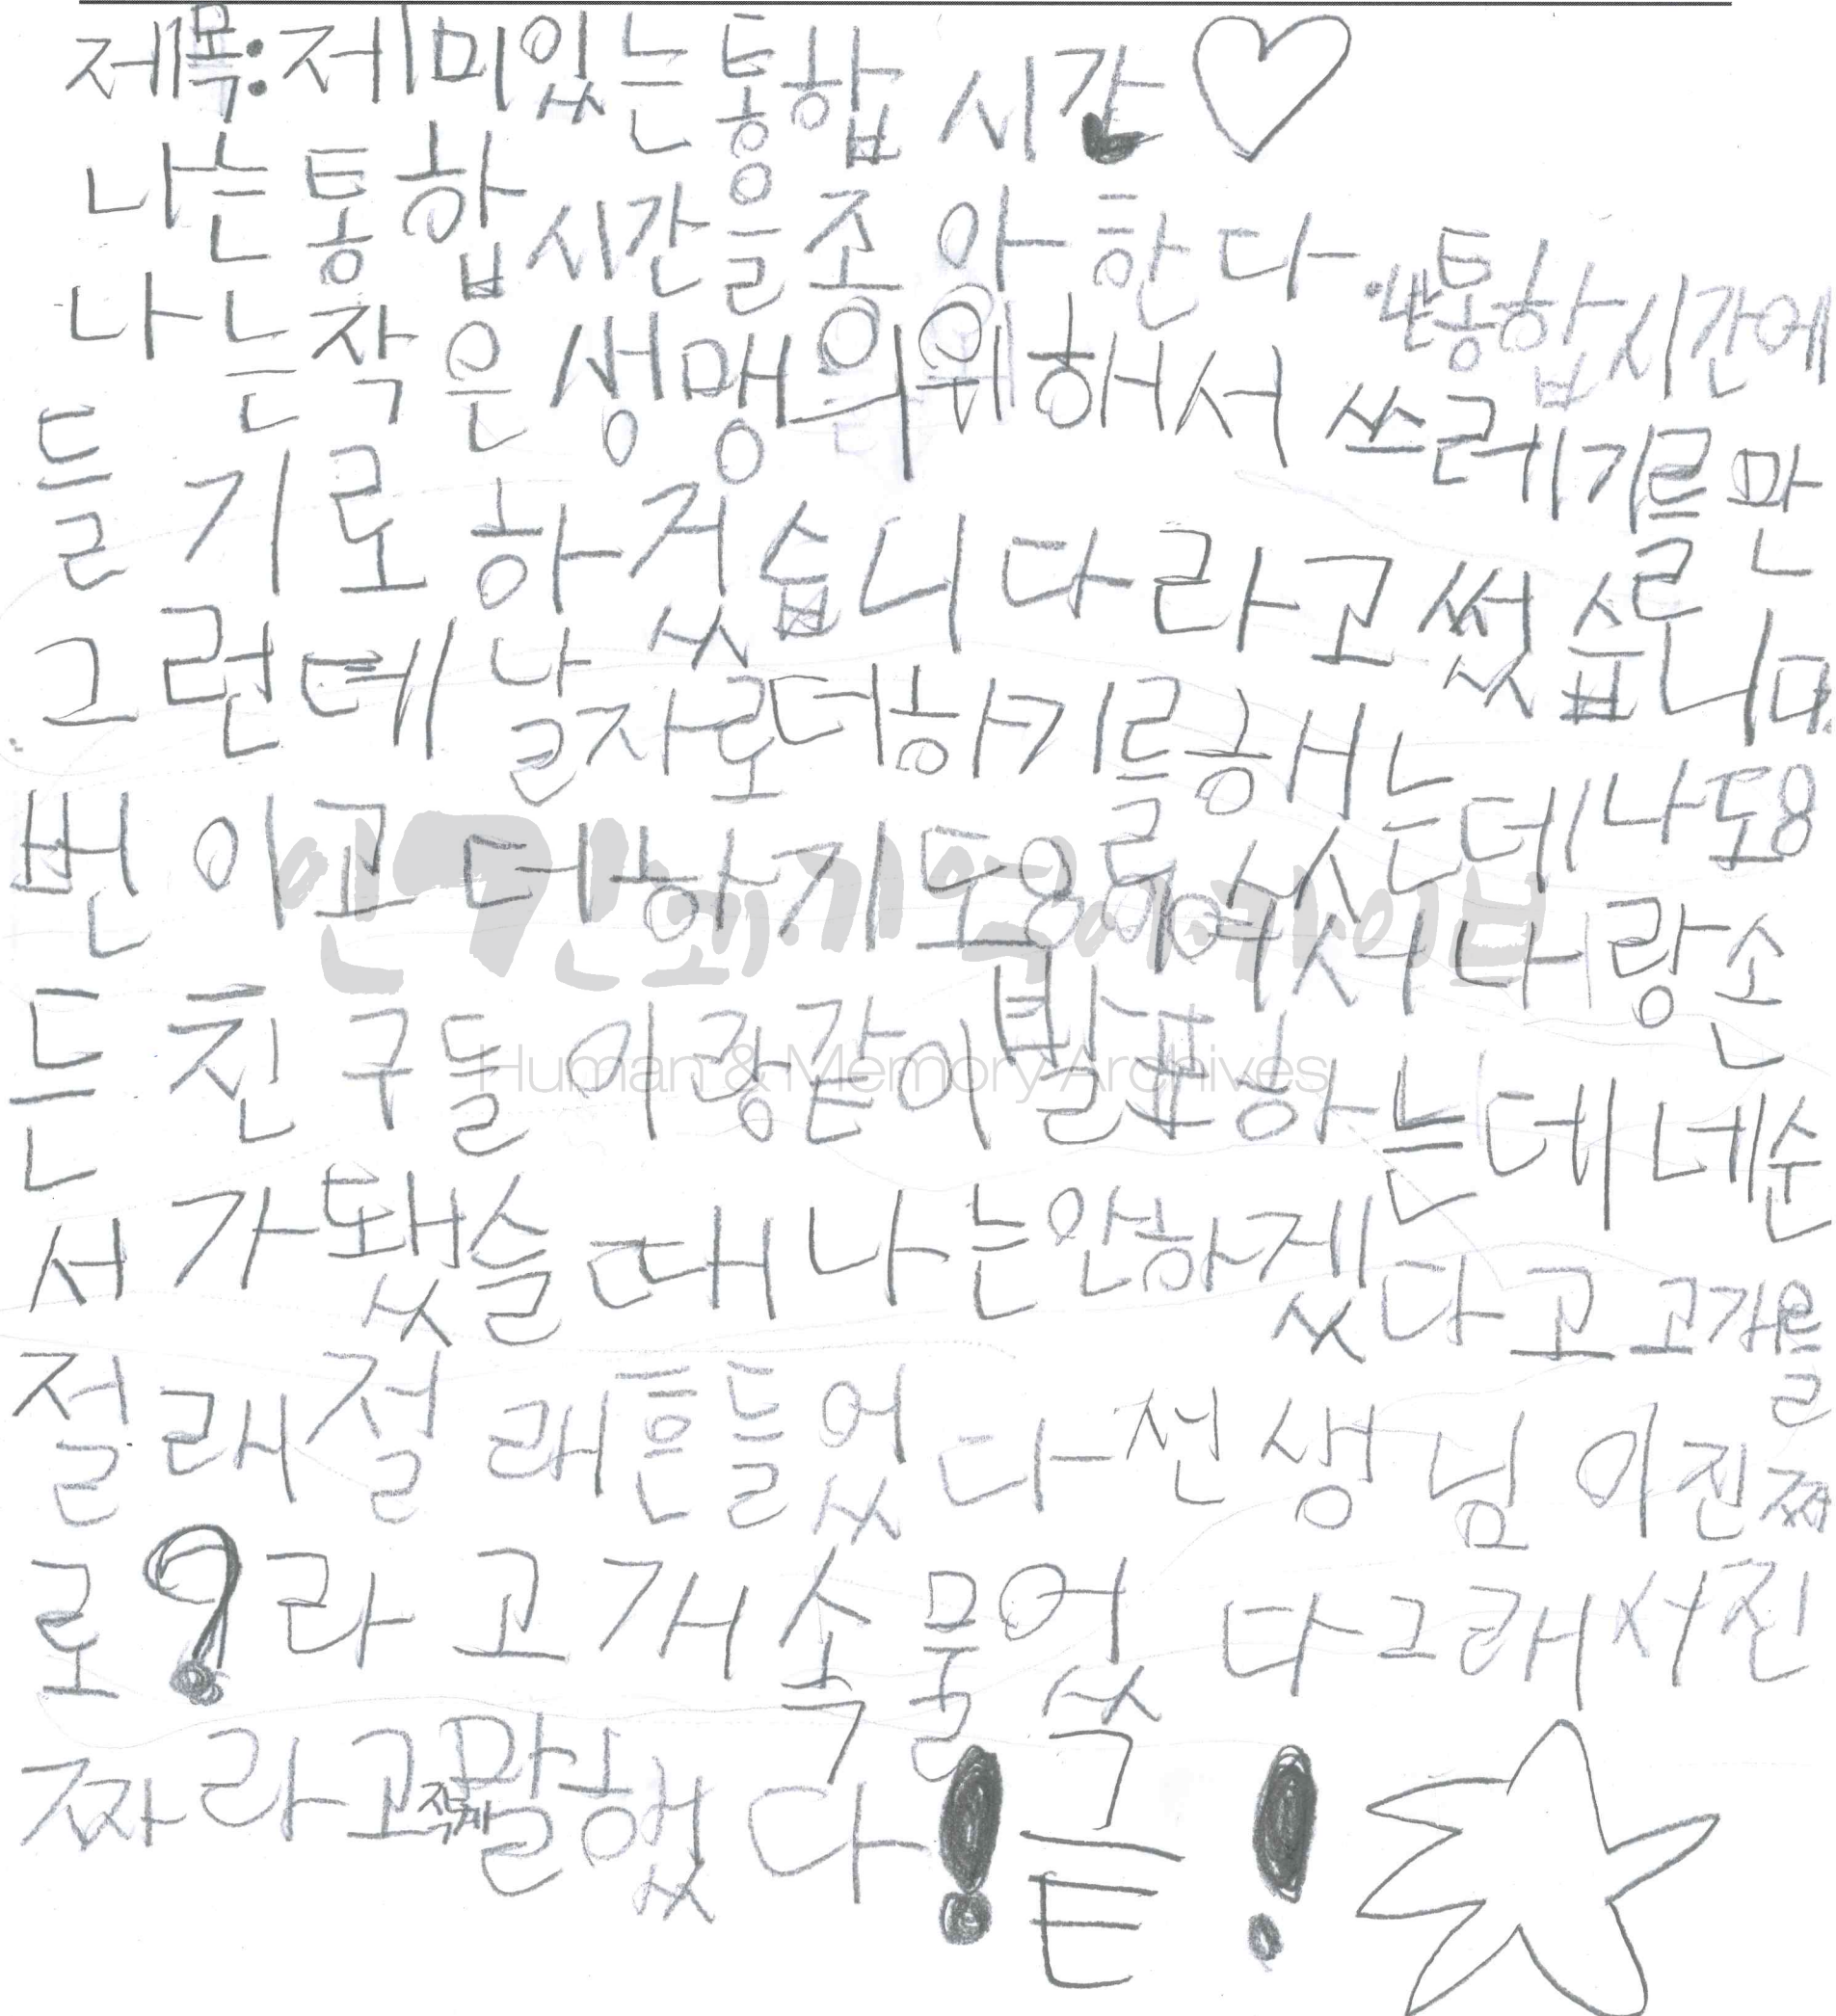 제목: 제미있는 통합 시간 ♡
나는 통합 시간을 조아한다. 난 통합 시간에
나는 작은 생맹의 위해서 쓰레기를 만
들기로 하겄습니다 라고 썼습니다.
그런데 날자로 더하기를 해는데 나도 8
번이고 더하기도 8이여서 나랑 손
든 친구들이랑 같이 발표하는데 네 순
서가 됐슬때 나는 안하겠다고 고개를
절래절래 흔들었다 선생님이 진짜
로? 라고 개속 물었다 그래서 진
짜라고 작게 말했다! 끝!
인간과 기억 아카이브
Human & Memory Archives